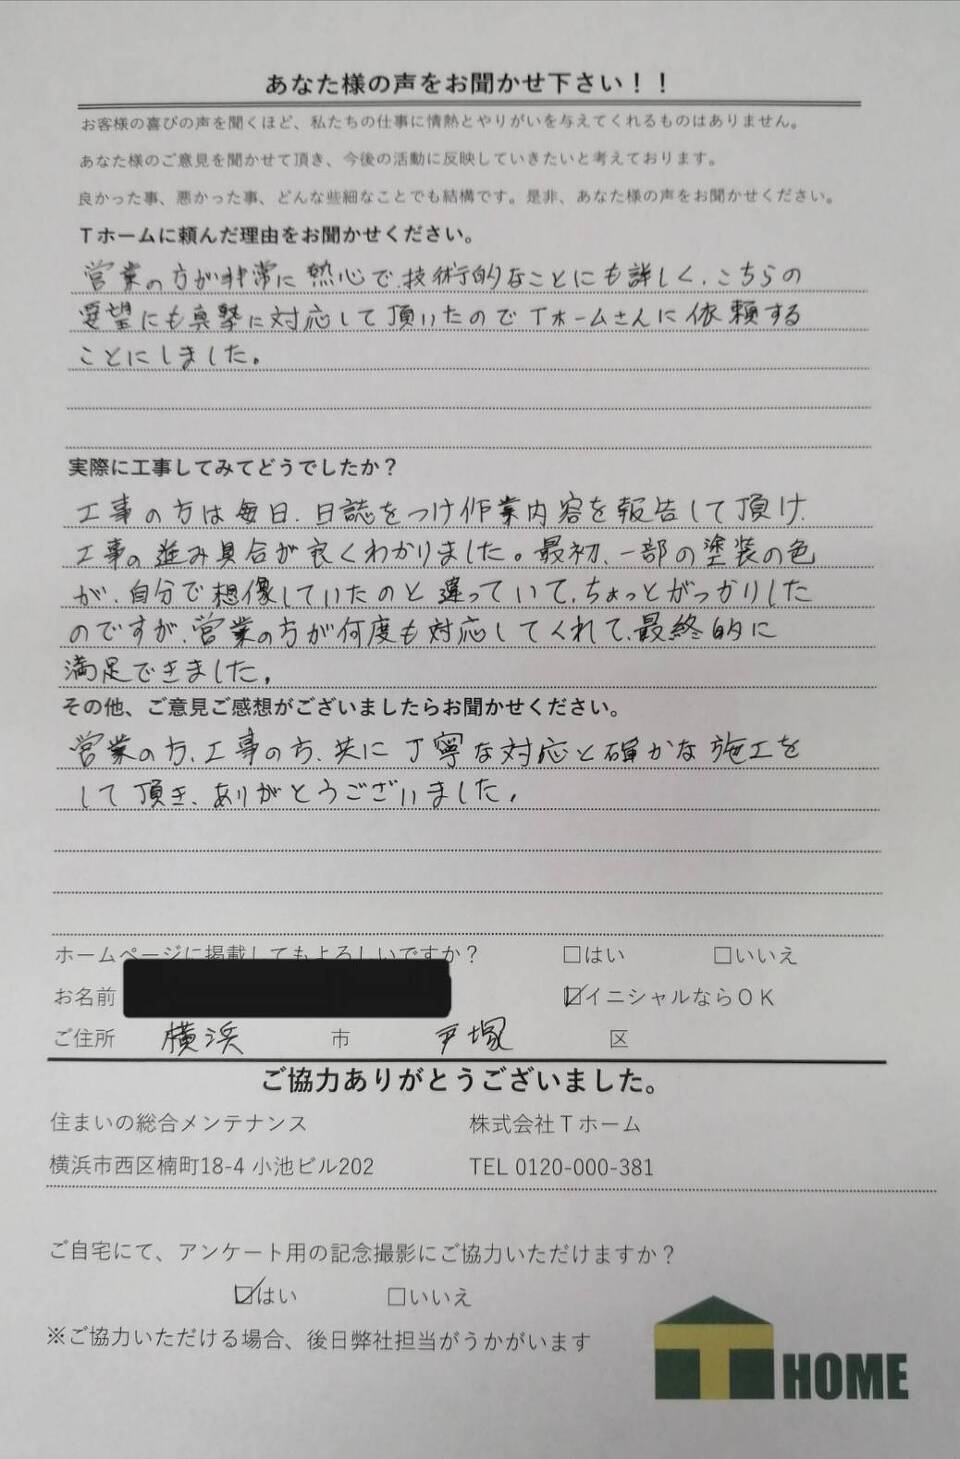 あなた様の声をお聞かせ下さい！！
お客様の喜びの声を聞くほど、私たちの仕事に情熱とやりがいを与えてくれるものはありません。
あなた様のご意見を聞かせて頂き、今後の活動に反映していきたいと考えております。
良かった事、悪かった事、どんな些細なことでも結構です。是非、あなた様の声をお聞かせください。
Tホームに頼んだ理由をお聞かせください。
営業の方が非常に熱心で、技術的なことにも詳しく、こちらの
要望にも真摯に対応して頂いたのでTホームさんに依頼する
ことにしました。
実際に工事してみてどうでしたか？
工事の方は毎日、日誌をつけ作業内容を報告して頂け、
工事の進み具合が良くわかりました。最初、一部の塗装の色
が、自分で想像していたのと違っていて、ちょっとがっかりした
のですが、営業の方が何度も対応してくれて、最終的に
満足できました。
その他、ご意見ご感想がございましたらお聞かせください。
営業の方、工事の方、共に丁寧な対応と確かな施工を
して頂き、ありがとうございました。
ホームページに掲載してもよろしいですか？ □はい □いいえ
お名前 ☑イニシャルならＯＫ
ご住所 横浜 市 戸塚 区
ご協力ありがとうございました。
住まいの総合メンテナンス 株式会社Ｔホーム
横浜市西区楠町18-4 小池ビル202 TEL 0120-000-381
ご自宅にて、アンケート用の記念撮影にご協力いただけますか？
☑はい □いいえ
※ご協力いただける場合、後日弊社担当がうかがいます
T HOME